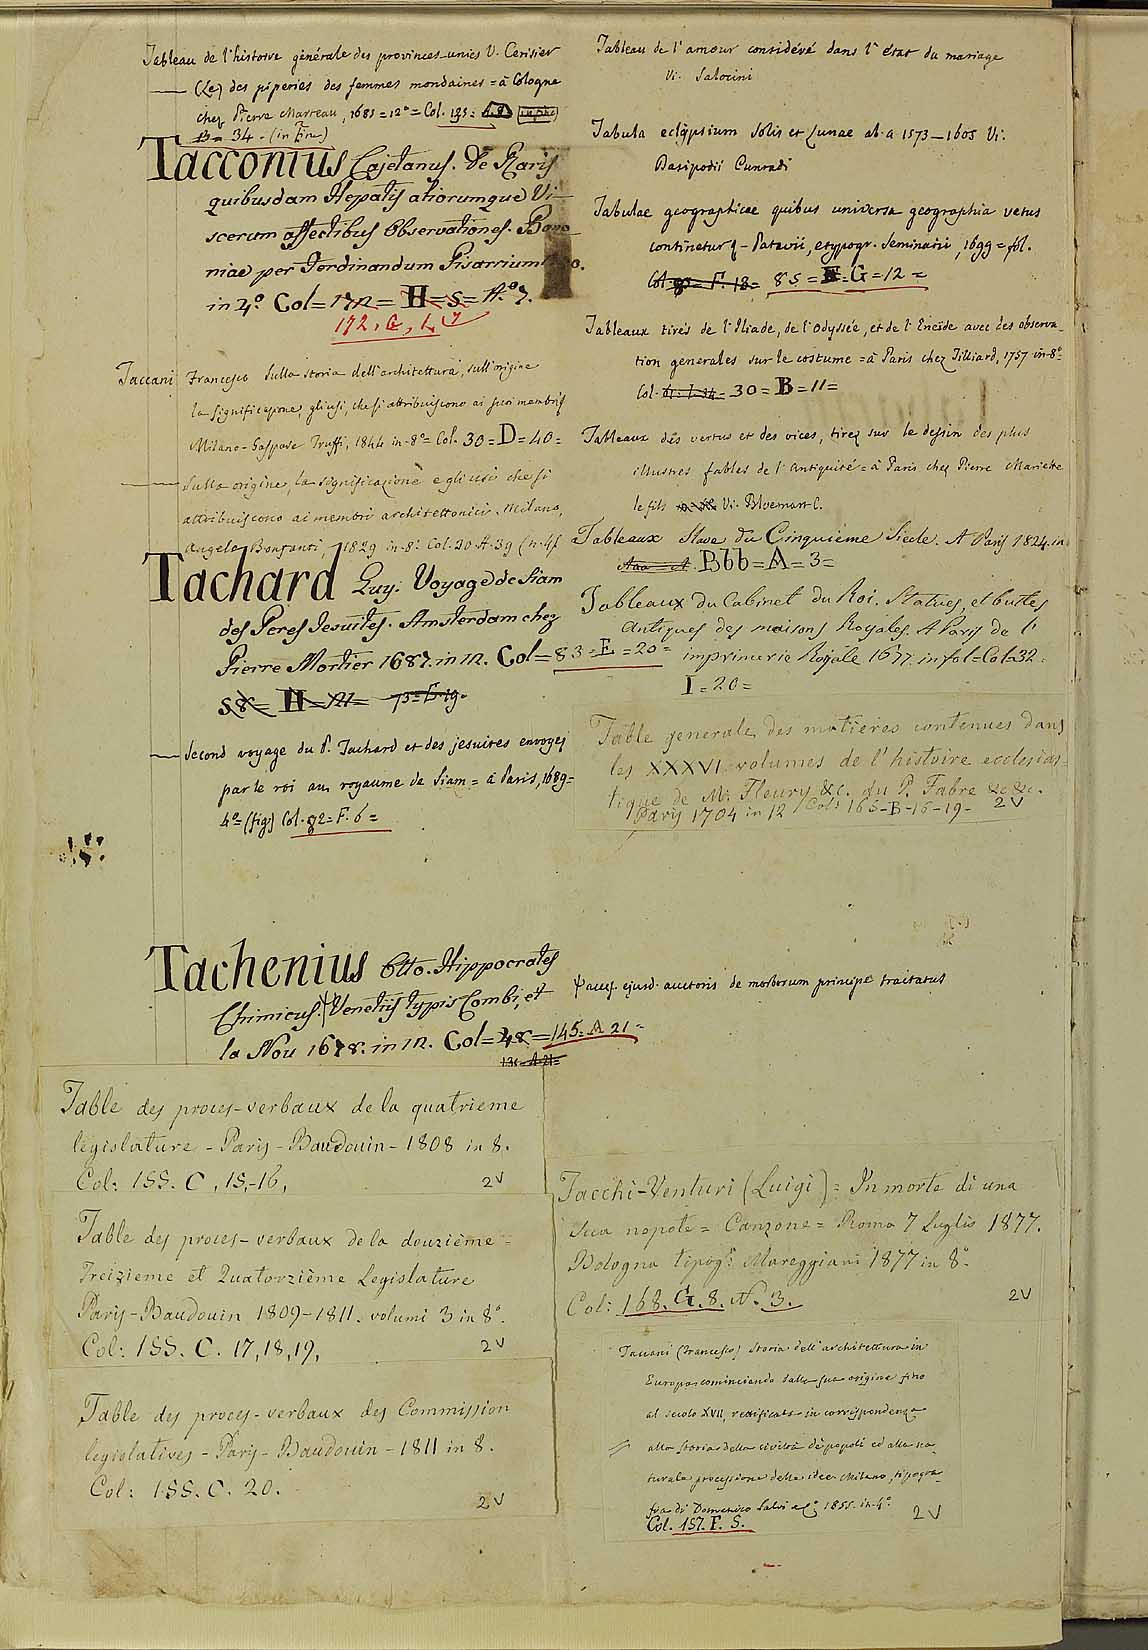 Tableau de l'histoire générale des provinces-unies V. Cerisier
— (Le) des piperies des femmes mondaines = à Cologne
chez Pierre Marteau, 1685 = 12° = Col. 135 =
B = 34 - (in fine)
Tacconius Cajetanus. De Raris
quibusdam Hepatis aliorumque Vi-
scerum affectibus Observationes. Bono-
niae per Ferdinandum Pisarrium
in 4° Col = 172 = H = S = A.° 7.
172, G, 1, 7
Taccani Francesco Sulla storia dell'architettura, sull'origine
la significazione, gli usi, che si attribuiscono ai suoi membri
Milano - Gaspare Truffi, 1844 in-8° = Col. 30 = D = 40 =
— Sulla origine, la significazione e gli usi che si
attribuiscono ai membri architettonici. Milano,
Angelo Bonfanti, 1829 in-8° Col. 20 A. 39 (n. 4)
Tachard Guy. Voyage de Siam
des Peres Jesuites. Amsterdam chez
Pierre Mortier 1687. in 12. Col = 83 = E = 20 =
58 = H = 121 = 73 = G. 19.
— Second voyage du P. Tachard et des jesuites envoyés
par le roi au royaume de Siam = à Paris, 1689 =
4° (fig) Col. 92 = F. 6 =
Tachenius Otto. Hippocrates
Chimicus. Venetiis typis Combi, et
la Nou 1678. in 12. Col = 48 = 145 = A 21 =
135 = A 21 =
Table des proces-verbaux de la quatrieme
legislature - Paris - Baudouin - 1808 in 8.
Col: 155. C, 15-16,
2V
Table des proces-verbaux de la douzième =
Treizieme et Quatorzième Legislature
Paris - Baudouin 1809-1811. volumi 3 in 8°.
Col: 155. C. 17, 18, 19,
2V
Table des proces-verbaux des Commission
legislatives - Paris - Baudouin - 1811 in 8.
Col: 155. C. 20.
2V
Tableau de l'amour considéré dans l'état du mariage
Vi. Salocini
Tabula eclypsium Solis et Lunae ab a 1573 — 1605 Vi:
Dasipodii Cunradi
Tabulae geographicae quibus universa geographia vetus
continetur - Patavii, e typogr. Seminarii, 1699 = fol.
Col. F. 18 = 85 = G = 12 =
Tableaux tirés de l'Iliade, de l'Odyssée, et de l'Eneïde avec des observa-
tion generales sur le costume = à Paris chez Tilliard, 1757 in-8°
Col. 30 = B = 11 =
Tableaux des vertus et des vices, tirez sur le dessin des plus
illustres fables de l'antiquité = à Paris chez Pierre Mariette
le fils Vi. Bloemart C.
Tableaux Slave du Cinquieme Siecle. A Paris 1824. in
Bbb = A = 3 =
Tableaux du Cabinet du Roi. Statues, et bustes
antiques des maisons Royales. A Paris de l'
imprimerie Royale 1677. in fol = Col = 32 =
I = 20 =
Table generale des matieres contenues dans
les XXXVI volumes de l'histoire ecclesias-
tique de Mr. Fleury &c. du P. Fabre &c &c.
Paris 1704 in 12 Col: 165 - B - 16 - 19 - 2V
auct. ejusd. auctoris de morborum principe tractatus
Tacchi-Venturi (Luigi) = In morte di una
sua nepote = Canzone = Roma 7 Luglio 1877.
Bologna tipogr. Mareggiani 1877 in 8°.
Col: 168. G. 8. N. 3.
2V
Taccani (Francesco) Storia dell'architettura in
Europa cominciando dalla sua origine fino
al secolo XVII, rettificata in corrispondenza
alla storia della civiltà de' popoli ed alla na-
turale processione delle idee. Milano, tipogra-
fia di Domenico Salvi e C.° 1855. in-4°.
Col. 157. F. 5.
2V